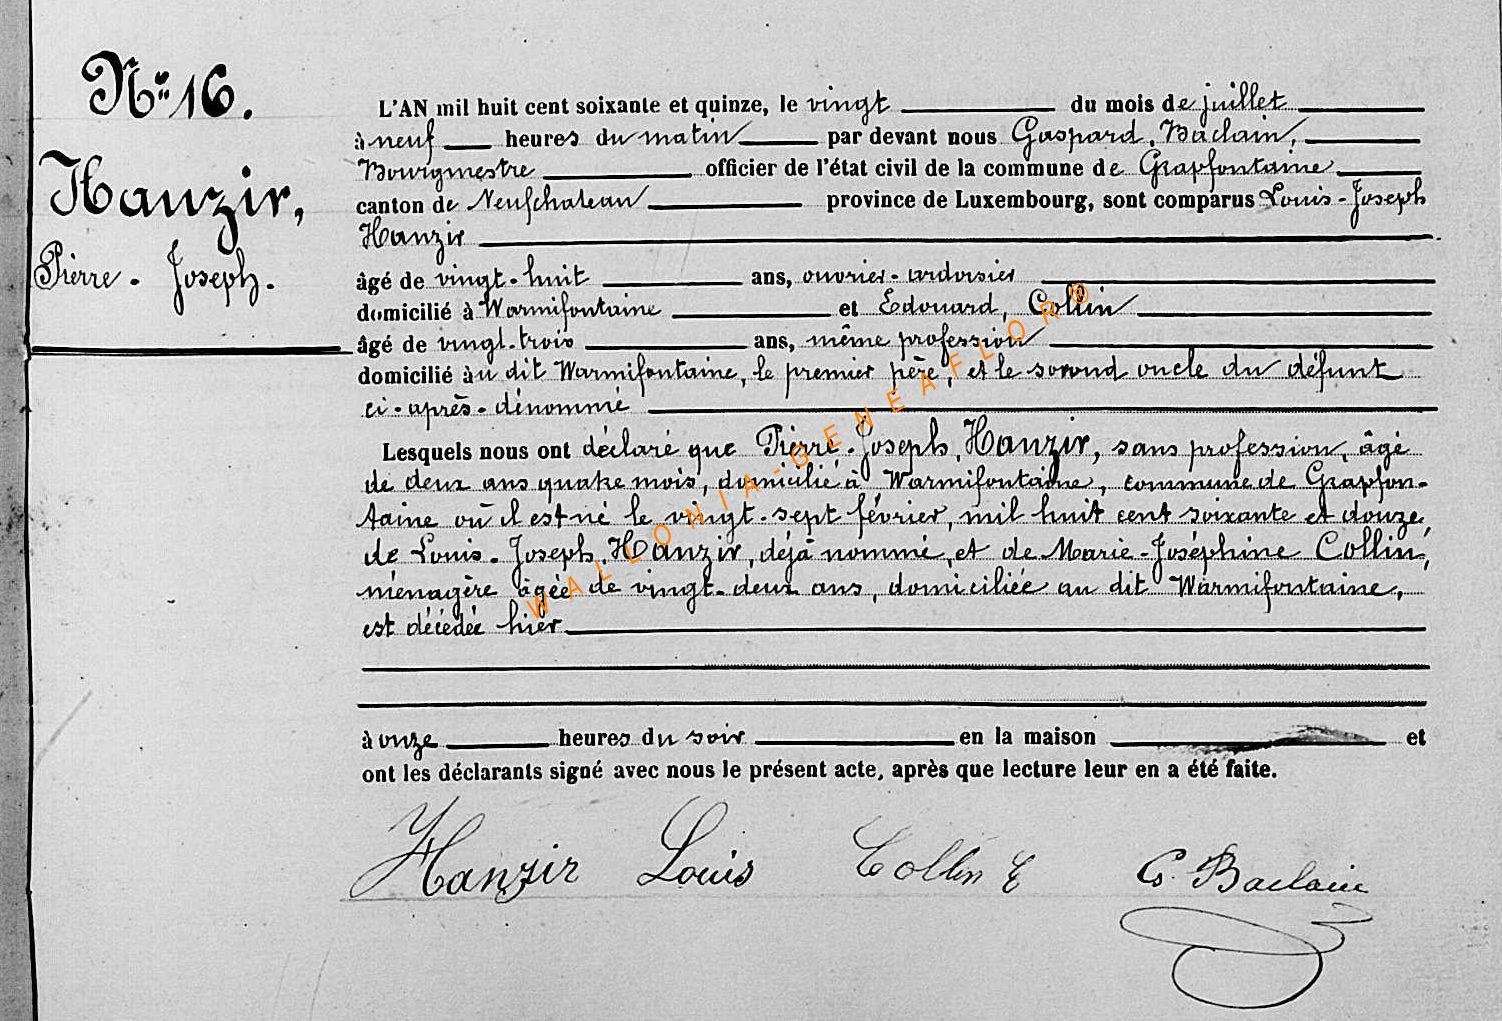 N° 16.
Hanzir,
Pierre - Joseph.
L'AN mil huit cent soixante et quinze, le vingt du mois de juillet
à neuf heures du matin par devant nous Gaspard, Baclain,
Bourgmestre officier de l'état civil de la commune de Grapfontaine
canton de Neufchateau province de Luxembourg, sont comparus Louis-Joseph
Hanzir
âgé de vingt-huit ans, ouvrier-ardoisier
domicilié à Warmifontaine et Edouard, Collin
âgé de vingt-trois ans, même profession
domicilié au dit Warmifontaine, le premier père, et le second oncle du défunt
ci-après-dénommé
Lesquels nous ont déclaré que Pierre-Joseph, Hanzir, sans profession, âgé
de deux ans quatre mois, domicilié à Warmifontaine, commune de Grapfon-
taine où il est né le vingt-sept février, mil huit cent soixante et douze,
de Louis-Joseph, Hanzir, déjà nommé, et de Marie-Joséphine Collin,
ménagère âgée de vingt-deux ans, domiciliée au dit Warmifontaine,
est décédée hier
à onze heures du soir en la maison et
ont les déclarants signé avec nous le présent acte, après que lecture leur en a été faite.
Hanzir Louis Collin E G. Baclain
WALLONIA-GENEAFLOR®